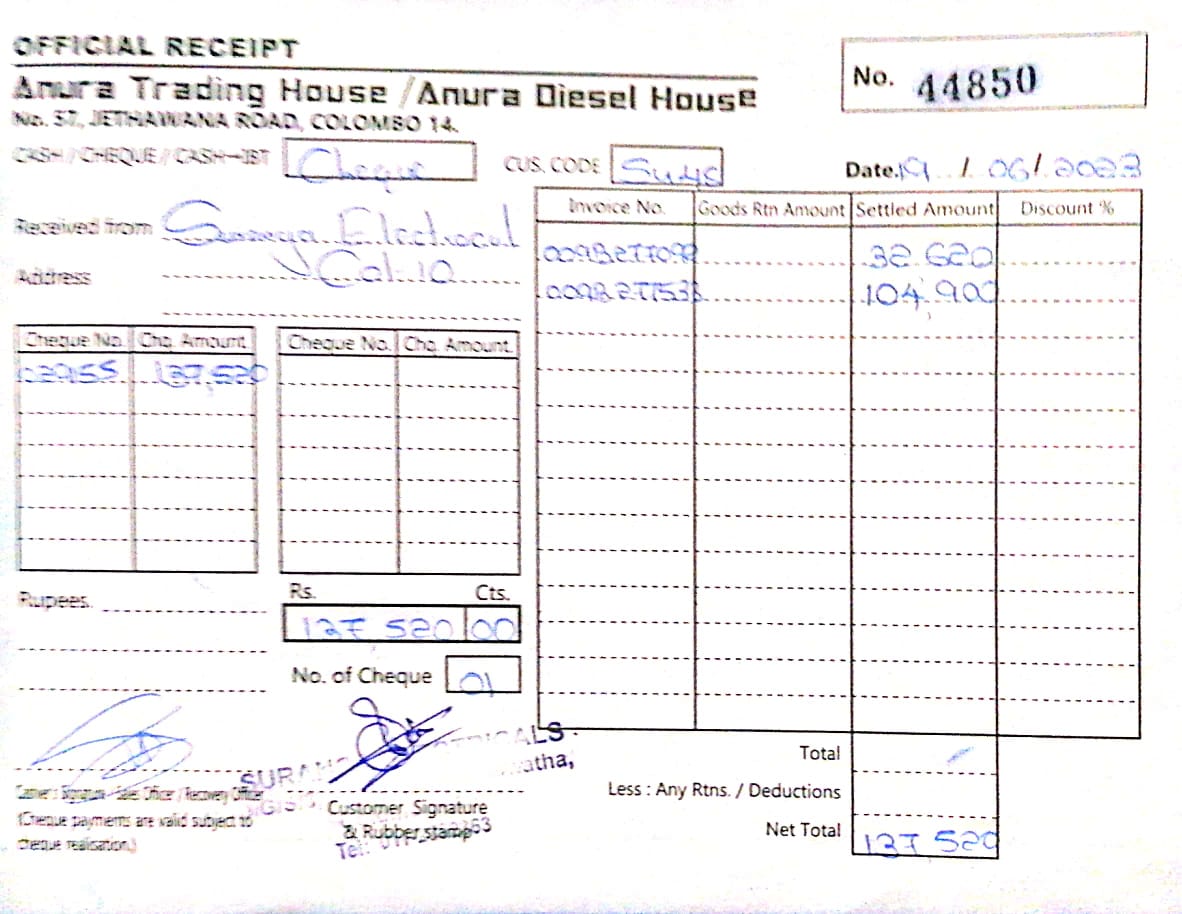 OFFICIAL RECEIPT
Anura Trading House / Anura Diesel House
No. 57, JETHAWANA ROAD, COLOMBO 14.
No. 44850
CASH / CHEQUE / CASH-IBT Cheque
CUS. CODE
Date. 19 / 06 / 2023
Received from Electrocal
Address Col-10
Cheque No. Chq. Amount Cheque No. Chq. Amount.
137,520
Invoice No. Goods Rtn Amount Settled Amount Discount %
32 620
104,900
Rupees.
Rs. Cts.
137 520 00
No. of Cheque 01
Total
Less : Any Rtns. / Deductions
Net Total 137 520
Signature / Sales Officer / Recovery Officer
(Cheque payments are valid subject to
cheque realisation.)
Customer, Signature
& Rubber stamp
Tel: